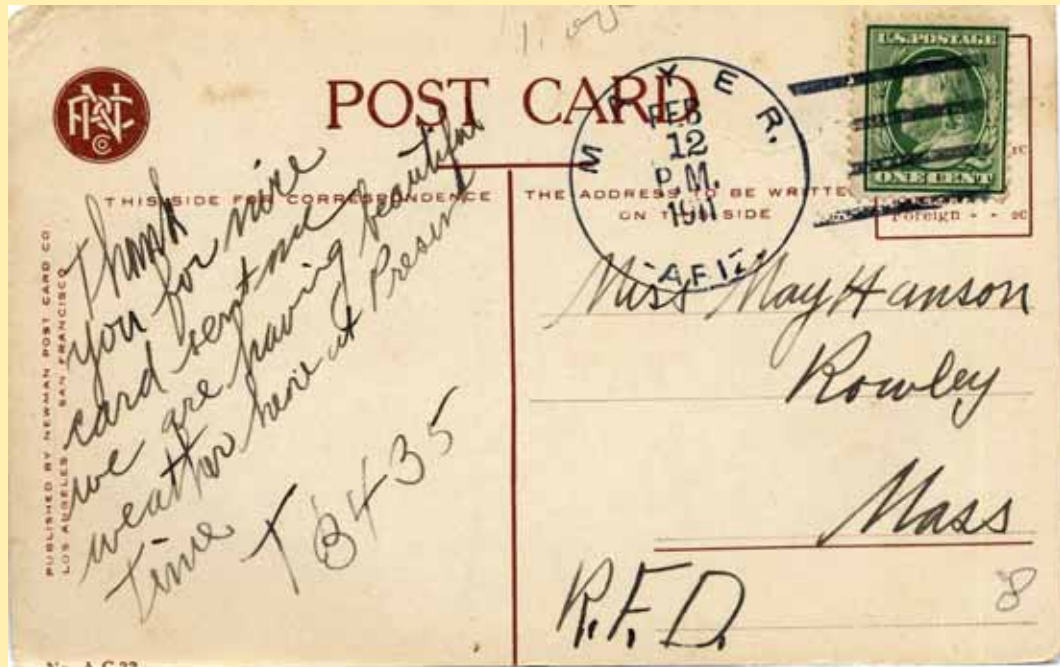 11.00
POST CARD
THIS SIDE FOR CORRESPONDENCE
THE ADDRESS TO BE WRITTE
ON THIS SIDE
MAYER.
FEB
12
P.M.
1911
ARIZ.
U.S. POSTAGE
ONE CENT
Foreign - - 2C
PUBLISHED BY NEWMAN POST CARD CO
LOS ANGELES SAN FRANCISCO
Thank
you for nice
card sent me
we are having beautiful
weather here at Present
time
T 8435
Miss May Hanson
Rowley
Mass
R.F.D.
8
No. A C 22